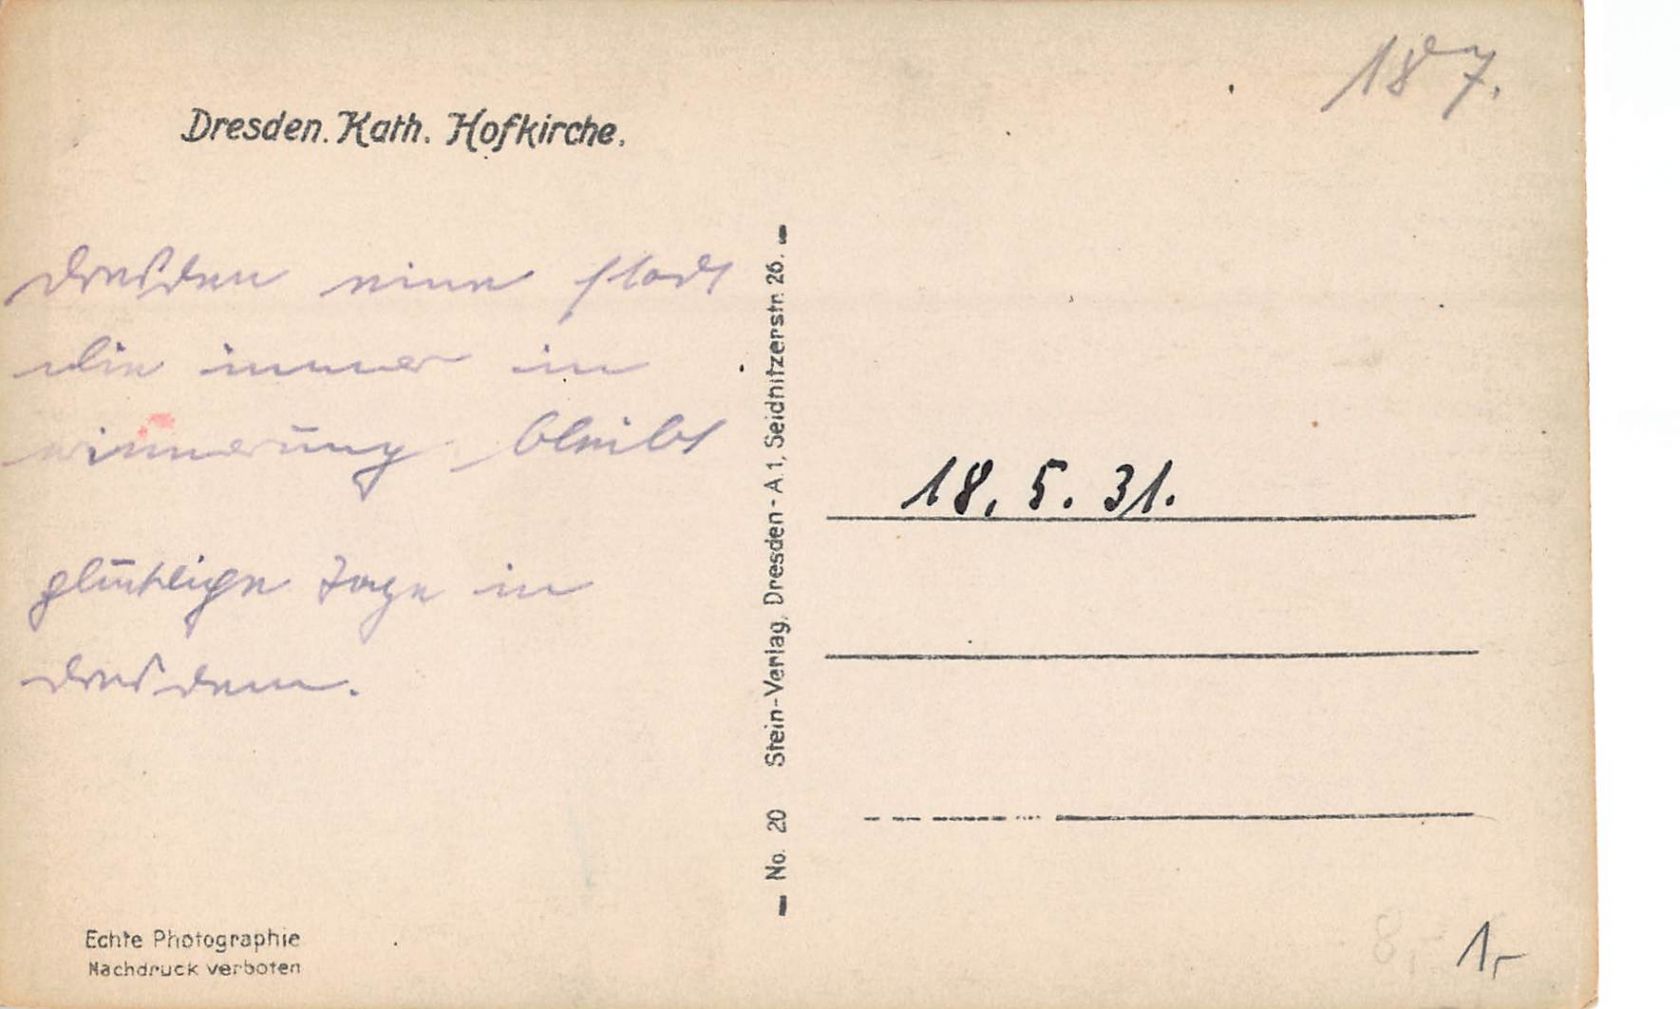 187.
Dresden. Kath. Hofkirche.
Dresden eine stadt
die immer in
erinnerung bleibt
glückliche Tage in
Dresden.
No. 20 Stein-Verlag, Dresden-A.1, Seidnitzerstr. 26.
18. 5. 31.
Echte Photographie
Nachdruck verboten
1,-